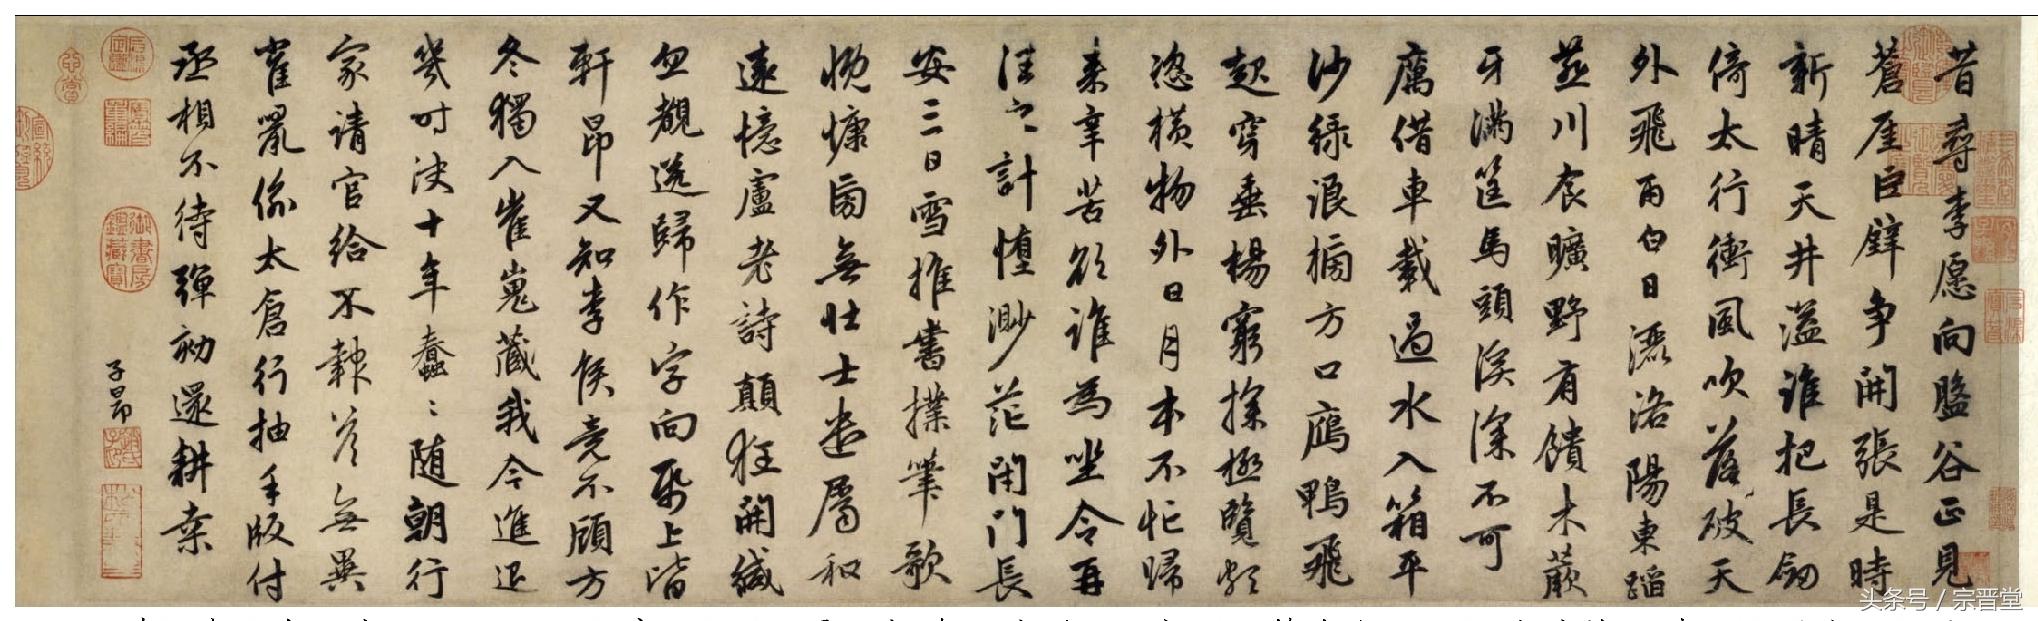 昔尋李愿向盤谷正見
蒼崖巨壁爭開張是時
新晴天井溢誰把長劒
倚太行衝風吹落破天
外飛雨白日灑洛陽東蹈
燕川食曠野有饋木蕨
牙滿筐馬頭溪深不可
厲借車載過水入箱平
沙緑浪榜方口鴈鴨飛
起穿垂楊窮探極覽頗
恣橫物外日月本不忙歸
來辛苦欲誰為坐令再
往之計墮渺茫閉門長
安三日雪推書撲筆歌
慨慷旁無壯士遣屬和
遠憶盧老詩顛狂開緘
忽覩送歸作字向紙上皆
軒昂又知李侯竟不顧方
冬獨入崔嵬藏我今進退
幾时決十年蠢〻随朝行
家請官給不報答無異
雀鼠偷太倉行抽手版付
丞相不待彈劾還耕桒
子昂
御書房鑑藏寶
头条号 / 宗晋堂